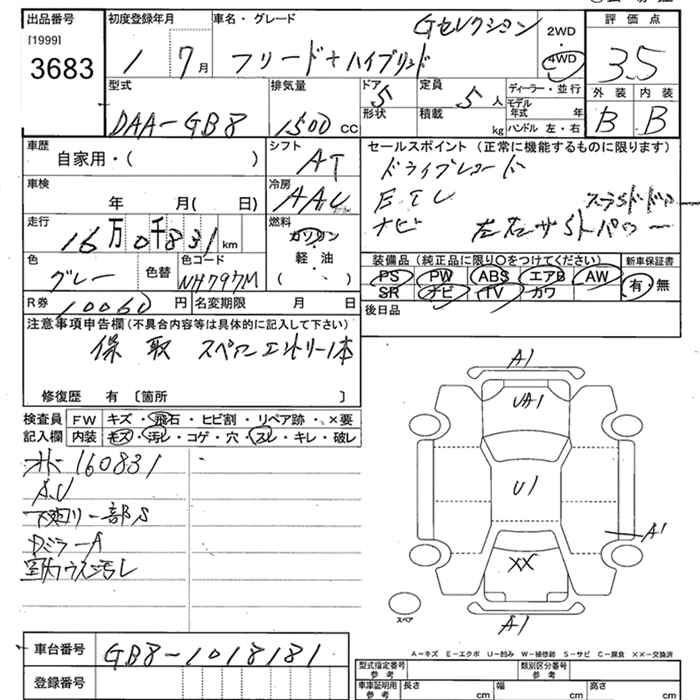 出品番号
[1999]
3683
初度登録年月
1 7月
車名・グレード
Gセレクション
フリード+ハイブリッド
2WD
・
4WD
評価点
3.5
外装 内装
B B
型式
DAA-GB8
排気量
1500 cc
ドア 5
形状
定員 5人
積載 kg
ディーラー・並行
モデル年式 年
ハンドル 左・右
車歴
自家用・( )
シフト AT
セールスポイント (正常に機能するものに限ります)
ドライブレコード
ETC
ナビ 左右
車検
年 月( 日)
冷房 AAC
走行
16万0千831km
燃料
ガソリン
軽油
( )
色
グレー
色替
色コード
NH797M
装備品 (純正品に限り○をつけてください)
PS PW ABS エアB AW
SR ナビ TV カワ
新車保証書
有・無
R券 10060円
名変期限 月 日
後日品
注意事項申告欄 (不具合内容等は具体的に記入して下さい)
保取 スペアエントリー1本
修復歴 有 〔箇所 〕
検査員記入欄
FW キズ・飛石・ヒビ割・リペア跡・×要
内装 キズ・汚レ・コゲ・穴・スレ・キレ・破レ
160831
A.U
下廻リ一部S
ドアミラーA
室内ウス汚レ
A1
UA1
U1
A1
XX
A1
スペア
A-キズ E-エクボ U-凹み W-補修跡 S-サビ C-腐食 XX-交換済
車台番号
GB8-1018181
登録番号
型式指定番号 参考
類別区分番号 参考
車庫証明用 参考
長さ cm
幅 cm
高さ cm